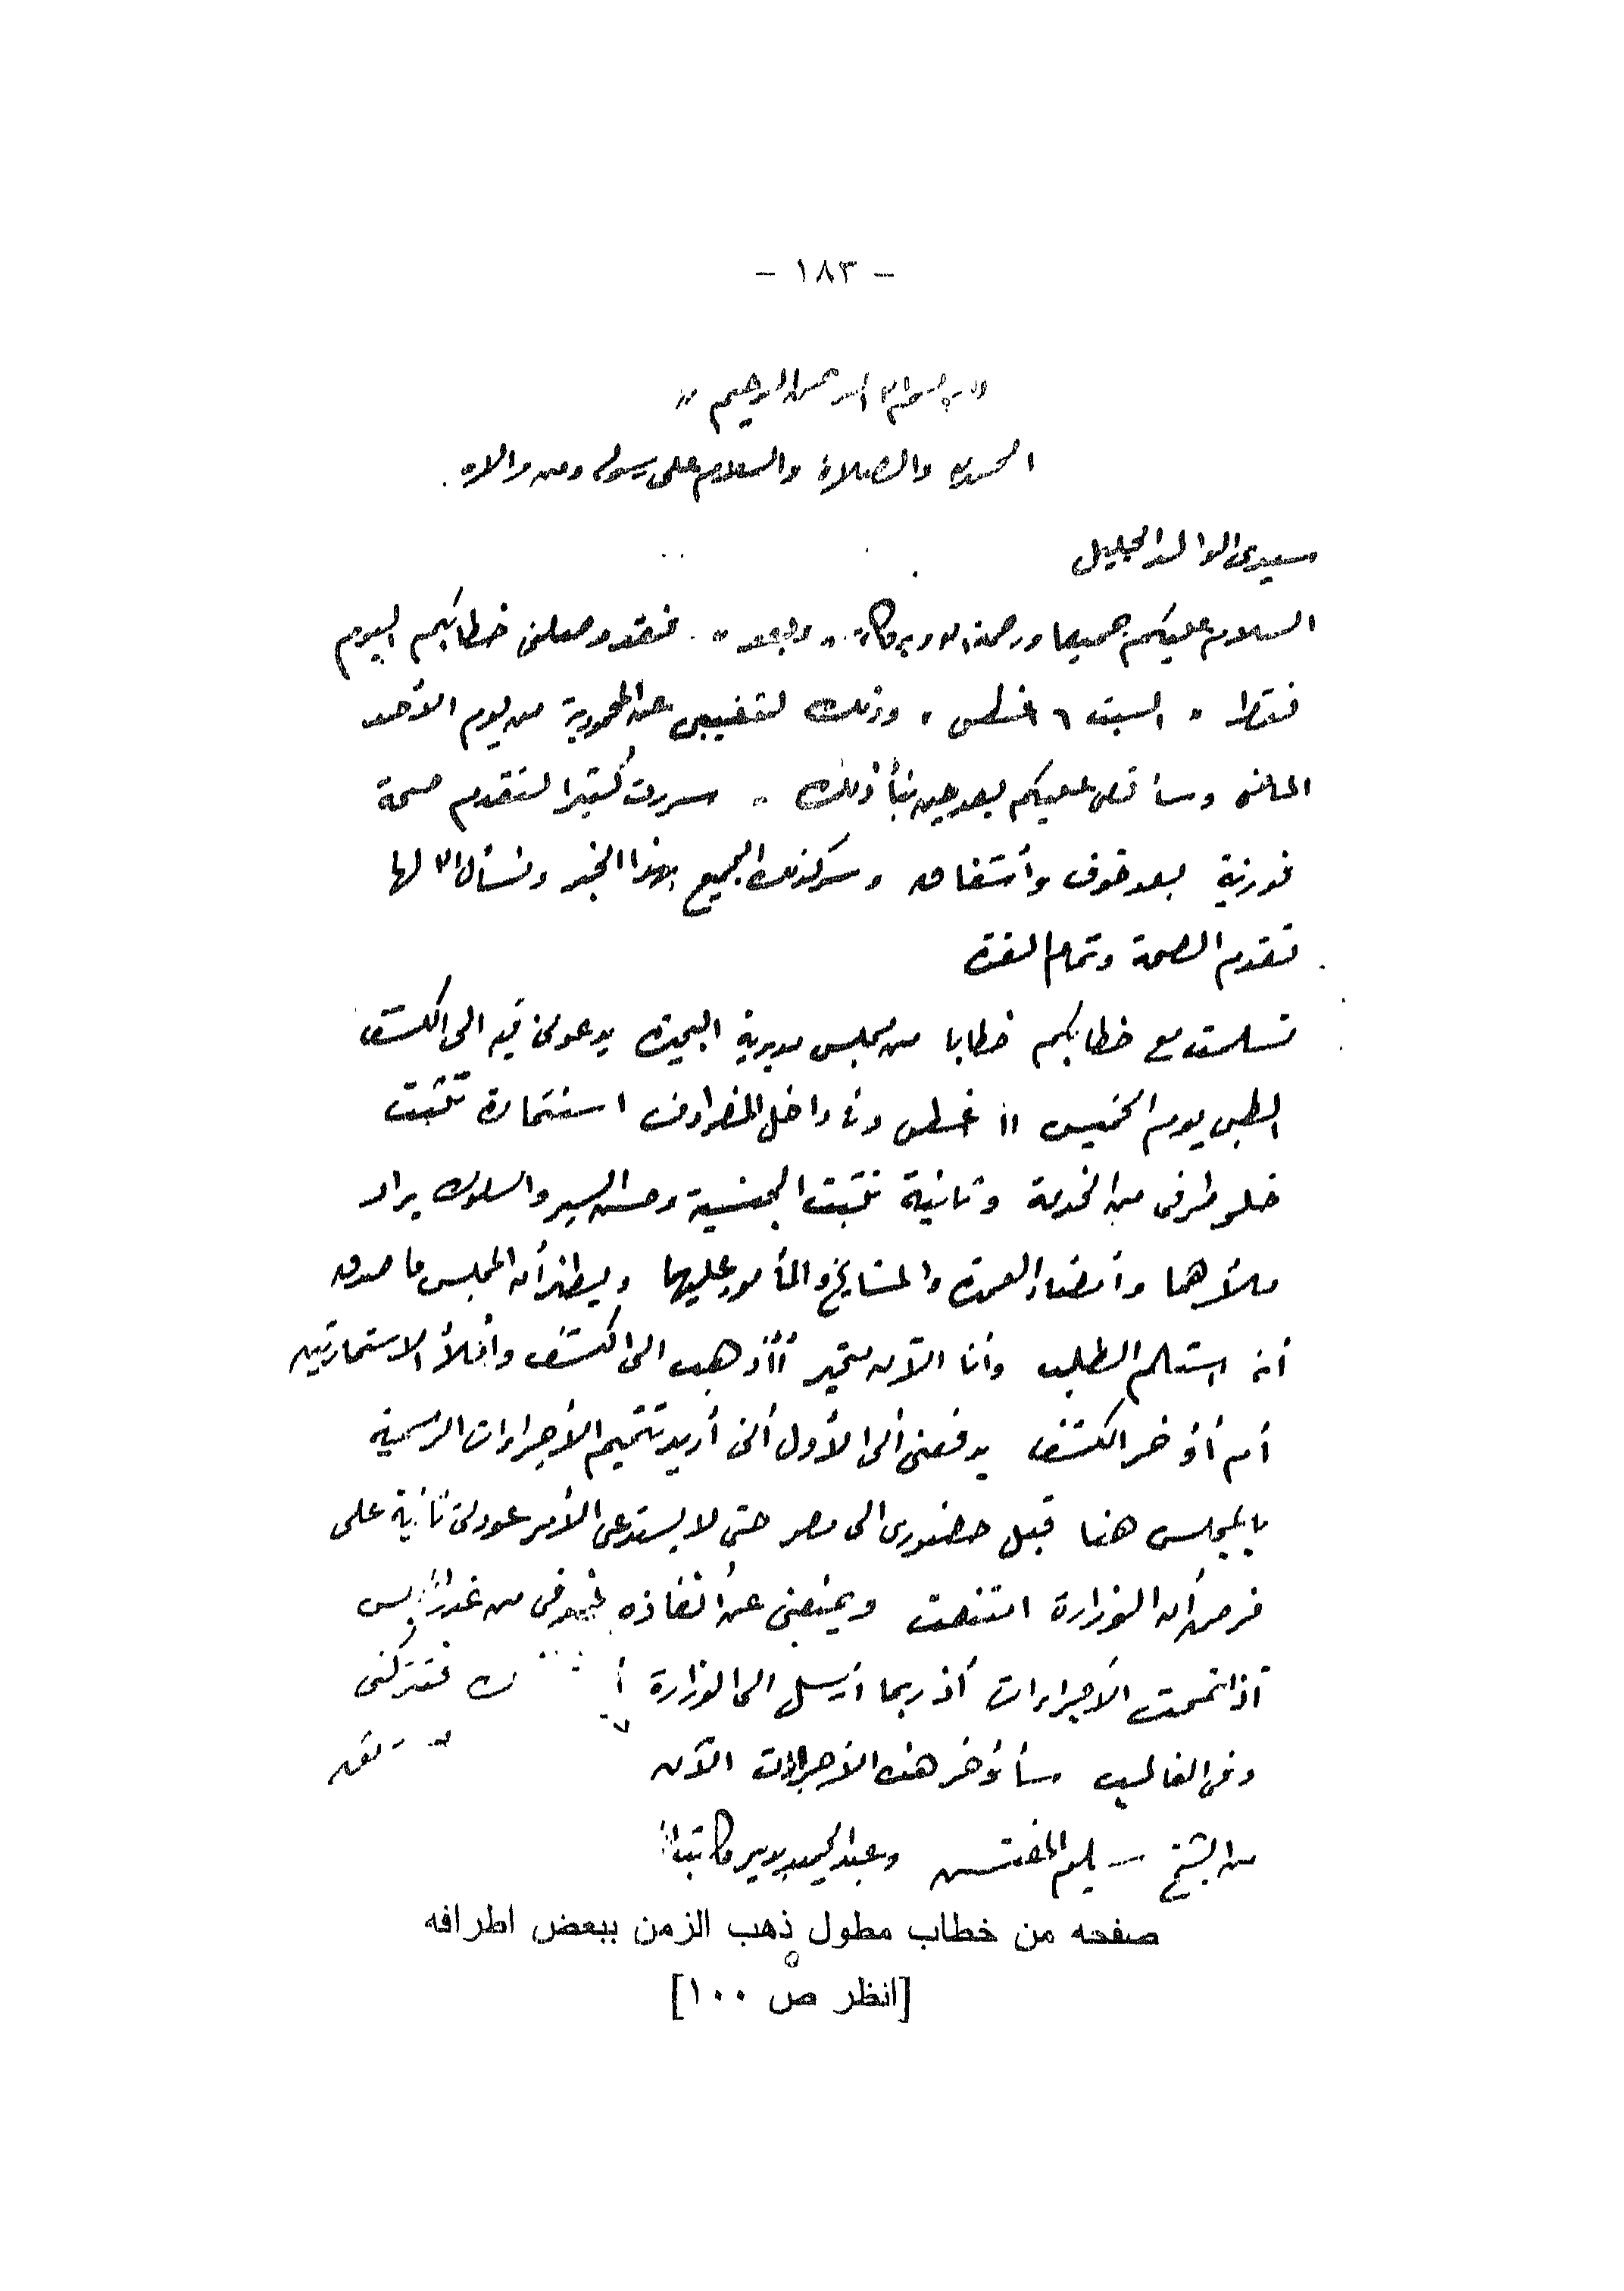 - ١٨٣ -
« بسم الله الرحمن الرحيم »
الحمد لله والصلاة والسلام على رسوله ومن والاه .
سيدى الوالد الجليل
السلام عليكم جميعا ورحمة الله وبركاته " وبعد " . فقد وصلنى خطابكم اليوم
فقط " السبت ٦ اغسطس " وذلك لتغيبى عن المحمودية من يوم الأحد
الماضى وسأقص عليكم بعد حين نبأ ذلك . سررت كثيرا لتقدم صحة
فوزية بعد خوف وأشفاق وسر كذلك الجميع بهذا الخبر ونسأل الله لها
تقدم الصحة وتمام
تسلمت مع خطابكم خطابا من مجلس مديرية البحيرة يدعونى فيه الى الكشف
الطبى يوم الخميس ١١ اغسطس وفى داخل المظروف استمارة تثبت
خلو طرفى من الخدمة وثانية تثبت الجنسية وحسن السير والسلوك يراد
ملأهما وأمضاء العمدة والمشايخ والمأمور عليهما ويظهر أن المجلس ما صدق
أنه استلم الطلب وأنا الآن متحير أأذهب الى الكشف وأملأ الاستمارتين
أم أؤخر الكشف يدفعنى ألى الأول أنى أريد تتميم الأجراءات الرسمية
بالمجلس هنا قبل حضورى الى مصر حتى لا يستدعى الأمر عودتى ثانية على
فرض أن الوزارة امتنعت ويمنعنى عن أنفاذه خوفى من
أذا تممت الأجراءات أذ ربما أرسل الى الوزارة فتتركنى
وفى الغالب سأؤخر هذه الأجراءات الآن
من الشيخ سليم المفتش وعبد الحميد بدير
صفحه من خطاب مطول ذهب الزمن ببعض اطرافه
[انظر ص ١٠٠]